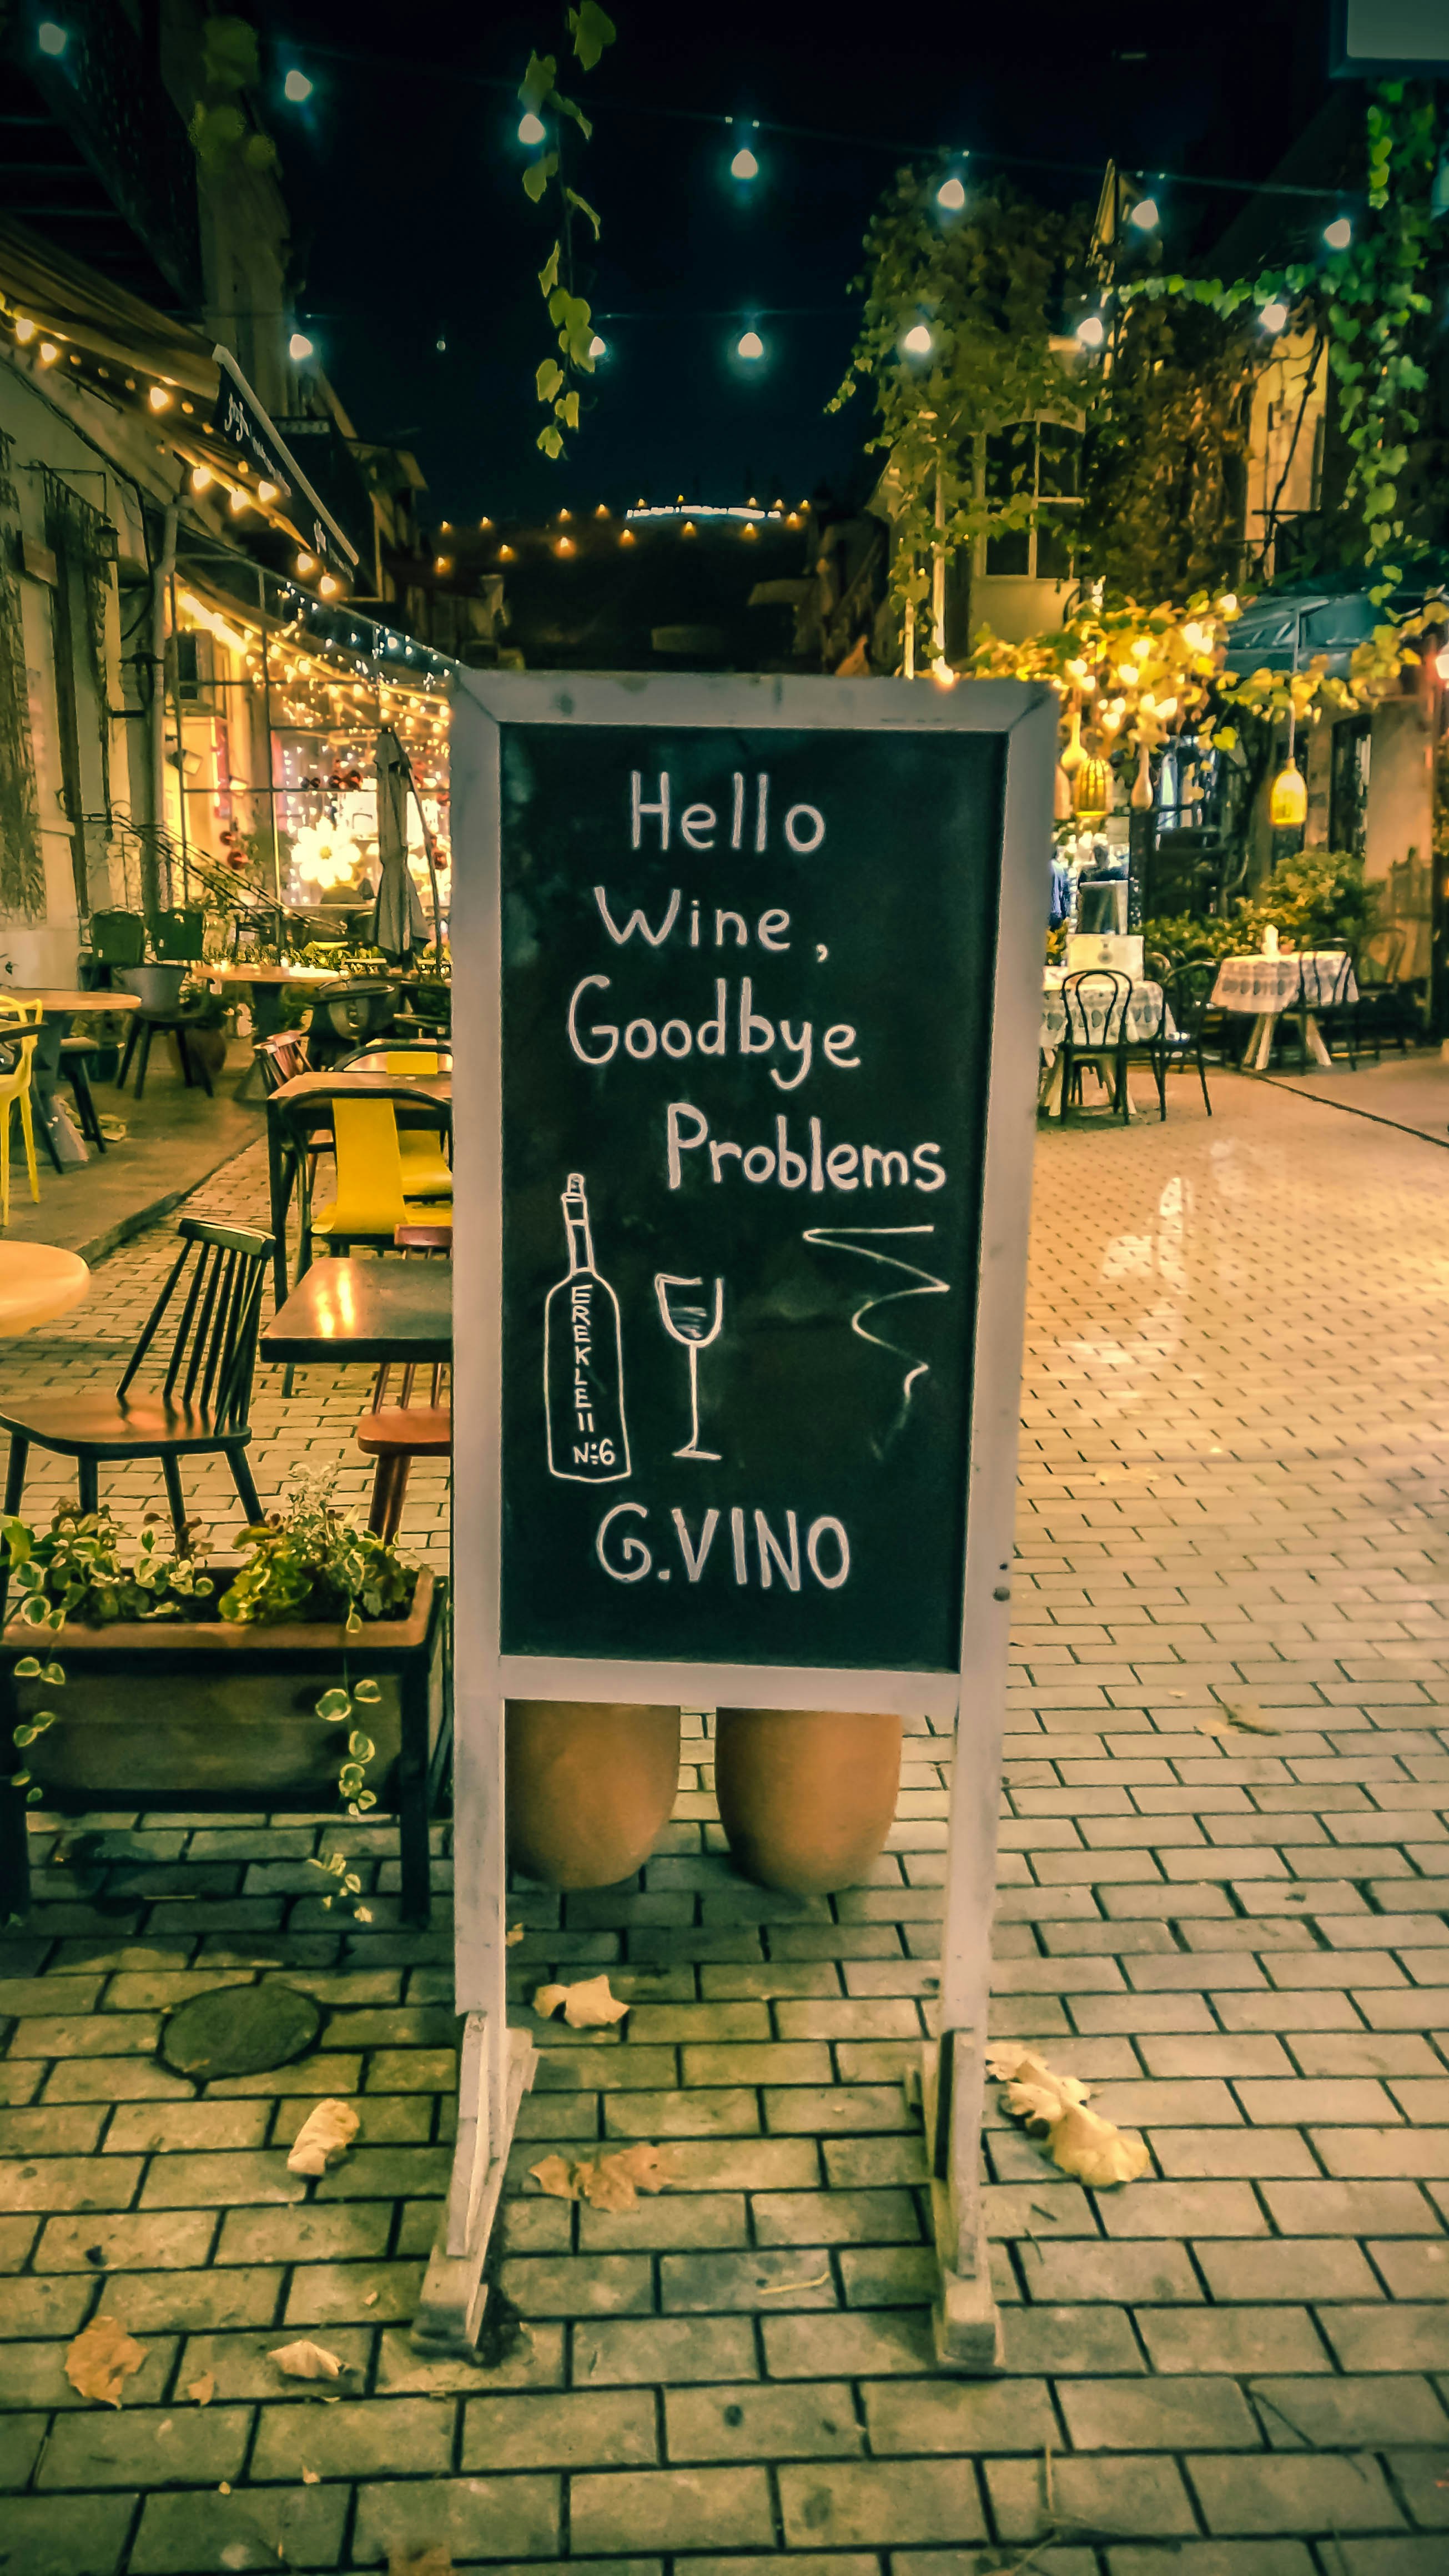 Hello
Wine,
Goodbye
Problems
EREKLE II
№6
G.VINO